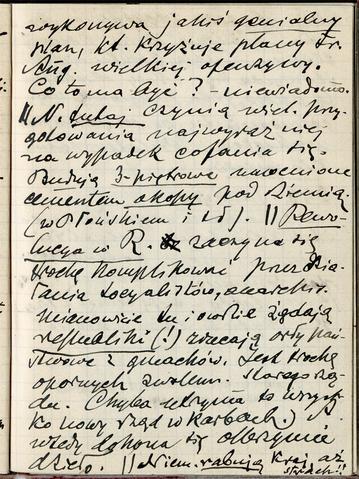 wykonywa jakiś genialny
plan, kt. krzyżuje plany fr.
Ang. wielkiej ofenzywy.
Co to ma być? - niewiadomo.
|| N. tutaj czynią wiel. przy-
gotowania najwyraźniej
na wypadek cofania się.
Budują 3-piętrowe umocnione
cementem okopy pod ziemią
(w Płońskiem i id). || Rewo-
lucya w R. zaczyna się
trochę komplikować przez dzia-
łania socyalistów, anarchis.
mianowicie tu i owdzie żądają
republiki (!) zrzucają orły pań-
stwowe z gmachów. Jest trochę
opornych zwolenn. starego rzą-
du. Chyba utrzyma to wszyst-
ko nowy rząd w karbach.
wtedy dokona się olbrzymie
dzieło. || Niem. rabują kraj aż
strach!!